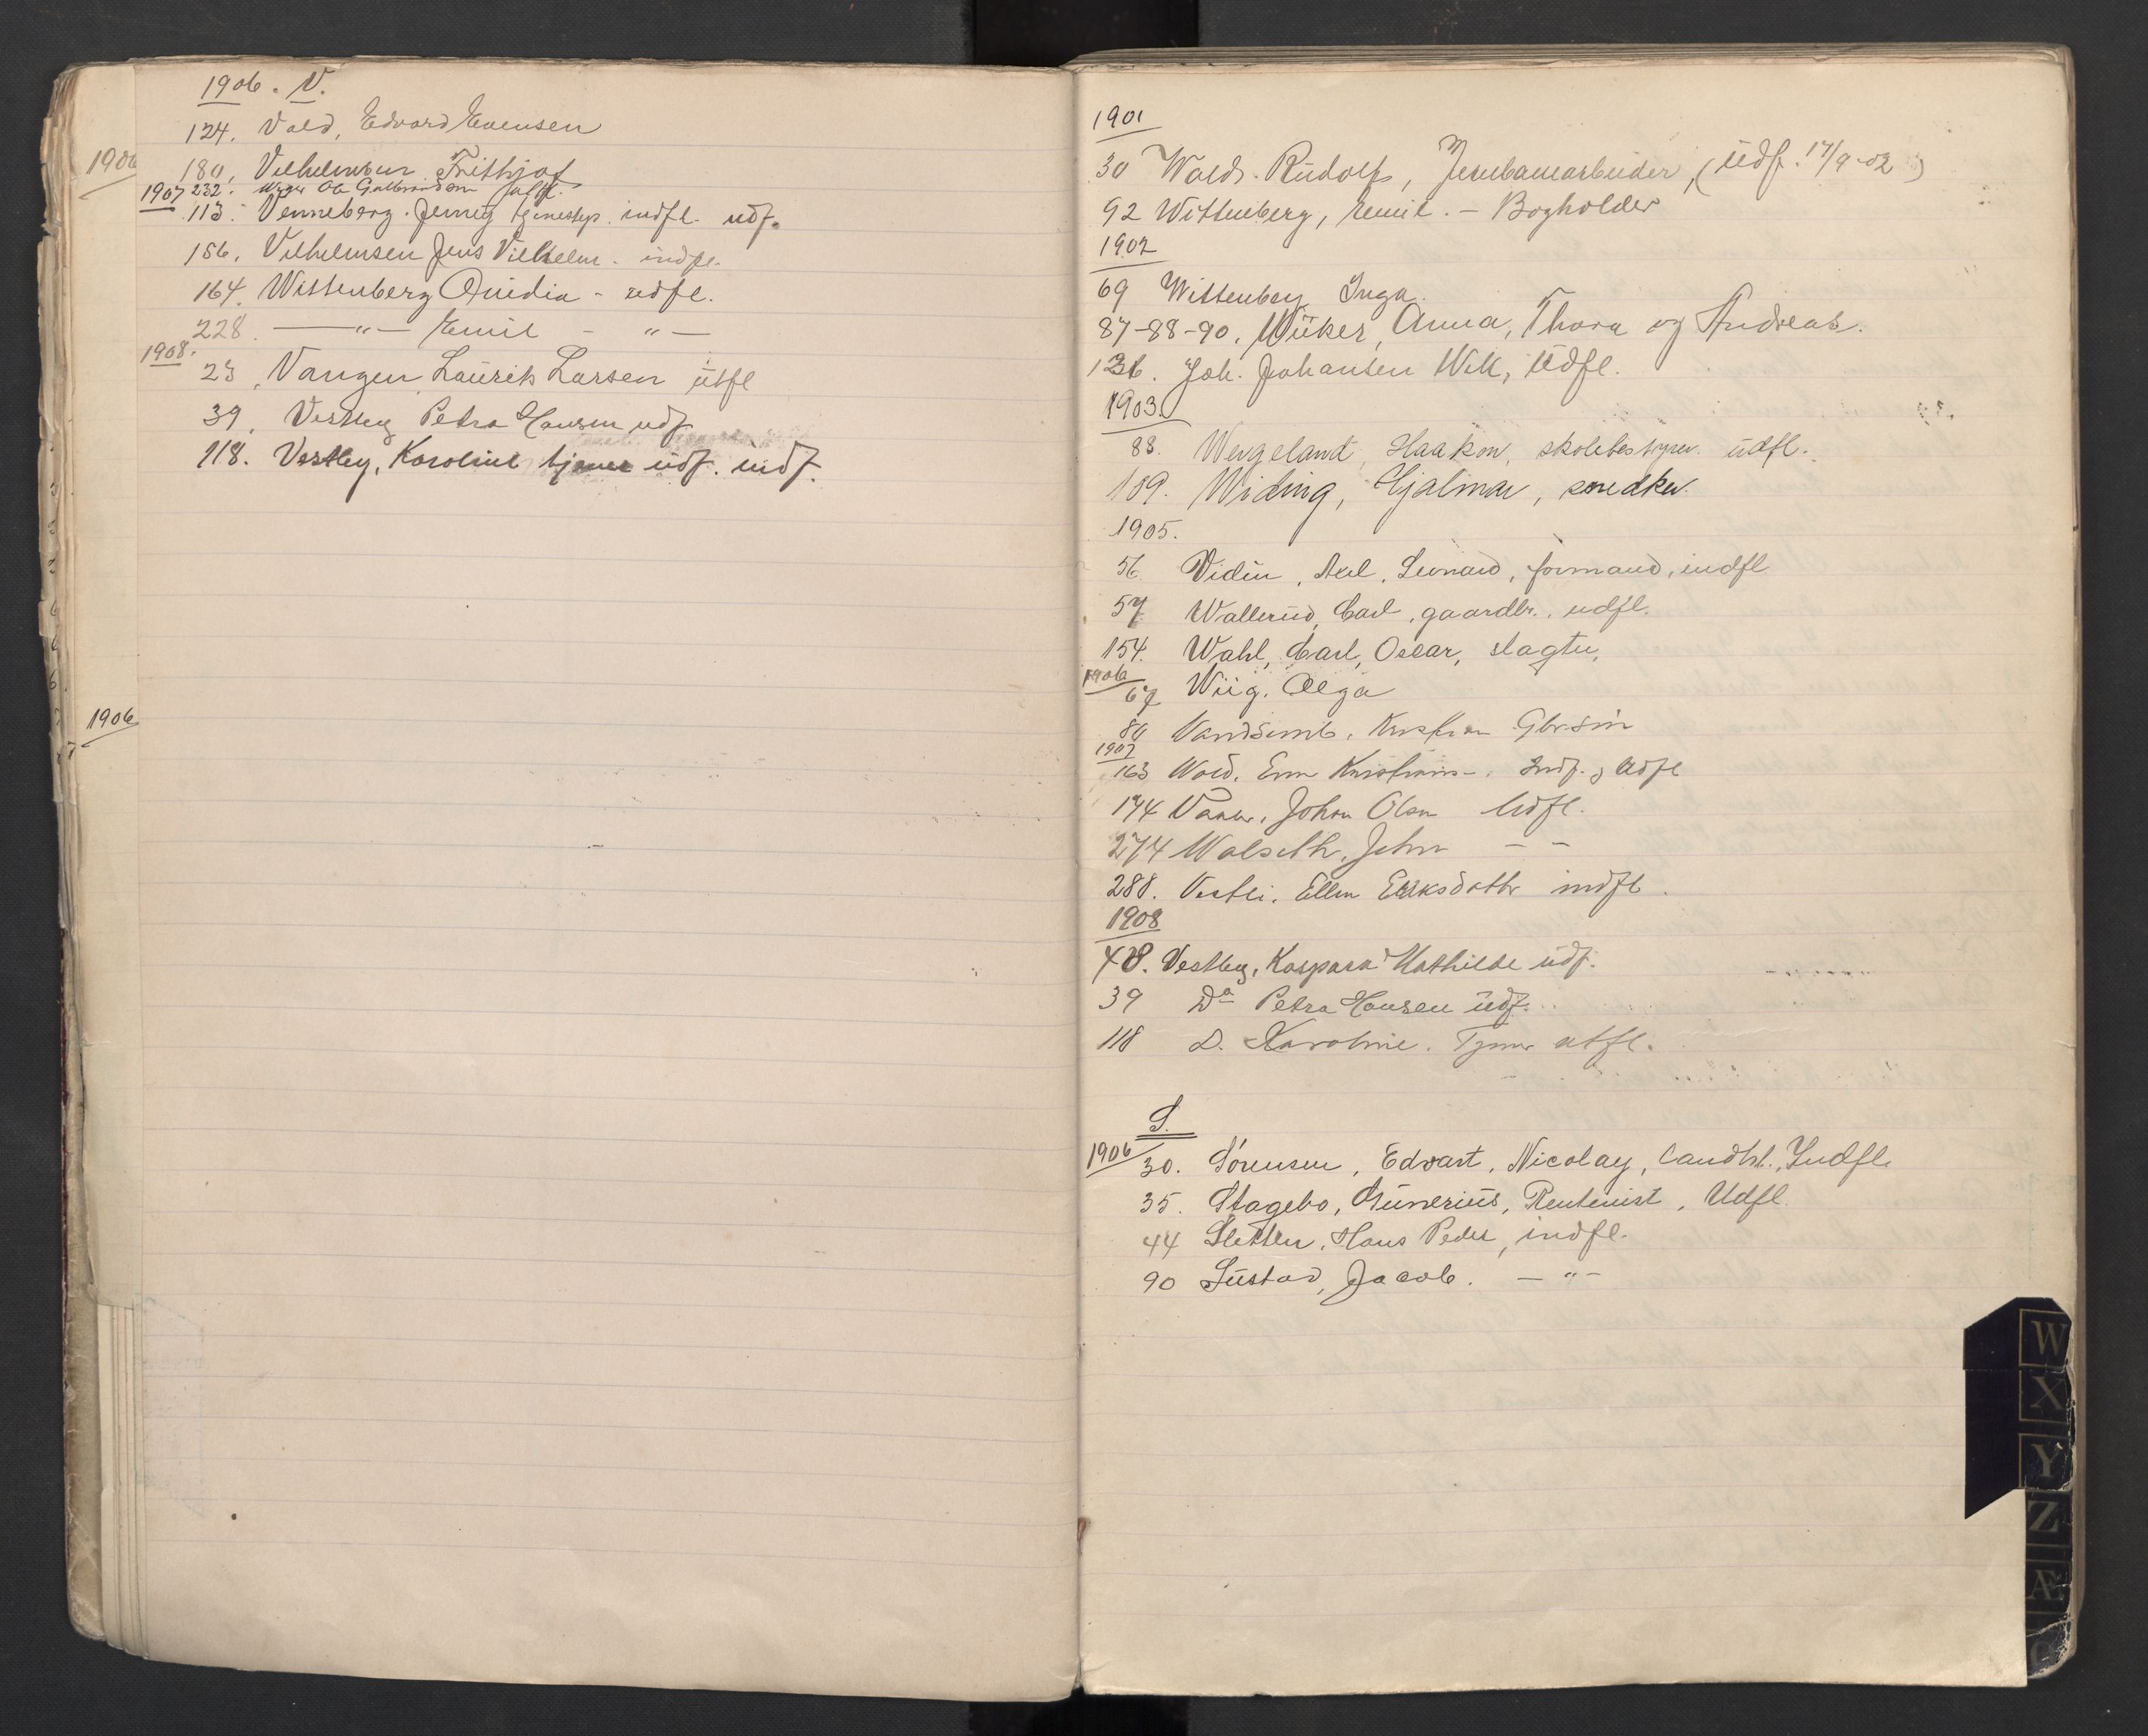 1906. V.
124. Vold, Edvard Evensen
1906
180. Vilhelmsen Frithjof
1907 232. Ole Gulbrandsen
113. Venneberg. Jenny tjenestep. indfl. udf.
156. Vilhelmsen Jens Vilhelm. indfl.
164. Wittenberg Ovidia - udfl.
228. —"— Emil - "—
1908.
23. Vangen Laurits Larsen utfl
39. Vestley Petra Hansen udf
118. Vestley, Karoline tjener udf. indf.
1906
1901
30 Wald. Rudolf, Jernbanearbeider, (Udf. 17/9-02)
92 Wittenberg, Emil. - Bogholder
1902
69 Wittenberg Inga.
87-88-90. Wiiker, Anna, Thora og Andreas.
136. Joh. Johansen Wik, Udfl.
1903.
88. Wergeland, Haakon, skolebestyrer. udfl.
109. Widing, Hjalmar, snedker.
1905.
56 Vidin, Axel, Leonard, formand, indfl
57 Wallerud, Carl, gaardbr., udfl.
154. Wahl, Carl, Oscar, slagter,
1906
67 Wiig. Olga
80 Kristian
1907
163 Wold. Indf. & Udfl
174 Johan Olsen Udfl.
274 Walseth, John — —
288. Vestli. Ellen Eriksdatter indfl.
1908
48. Vestley, Kaspara Mathilde udf.
39 Do Petra Hansen udf.
118 D. Karoline. Tjener utfl.
S.
1906
30. Sørensen, Edvart, Nicolay, Landhl., Indfl.
35. Stagebo, Gunerius, Rentenist, Udfl.
44 Sletten, Hans Peder, indfl.
90 Sustad, Jacob. —"—
W
X
Y
Z
Æ